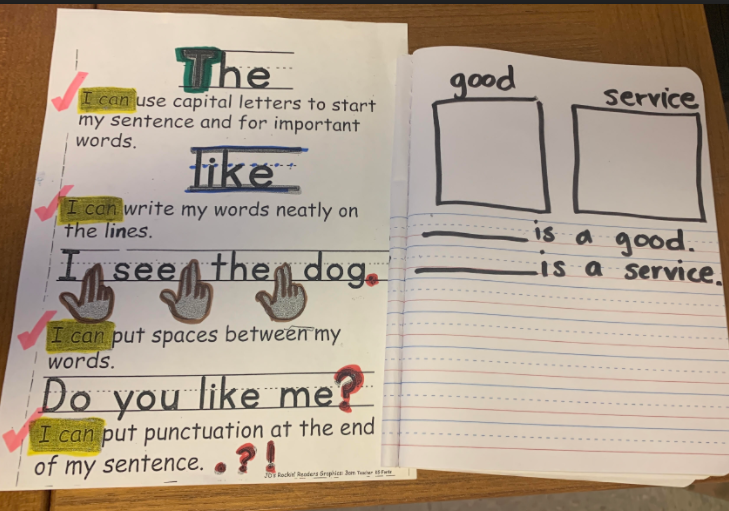 The
I can use capital letters to start
my sentence and for important
words.
like
I can write my words neatly on
the lines.
I see the dog.
I can put spaces between my
words.
Do you like me?
I can put punctuation at the end
of my sentence. . ? !
good
service
is a good.
is a service.